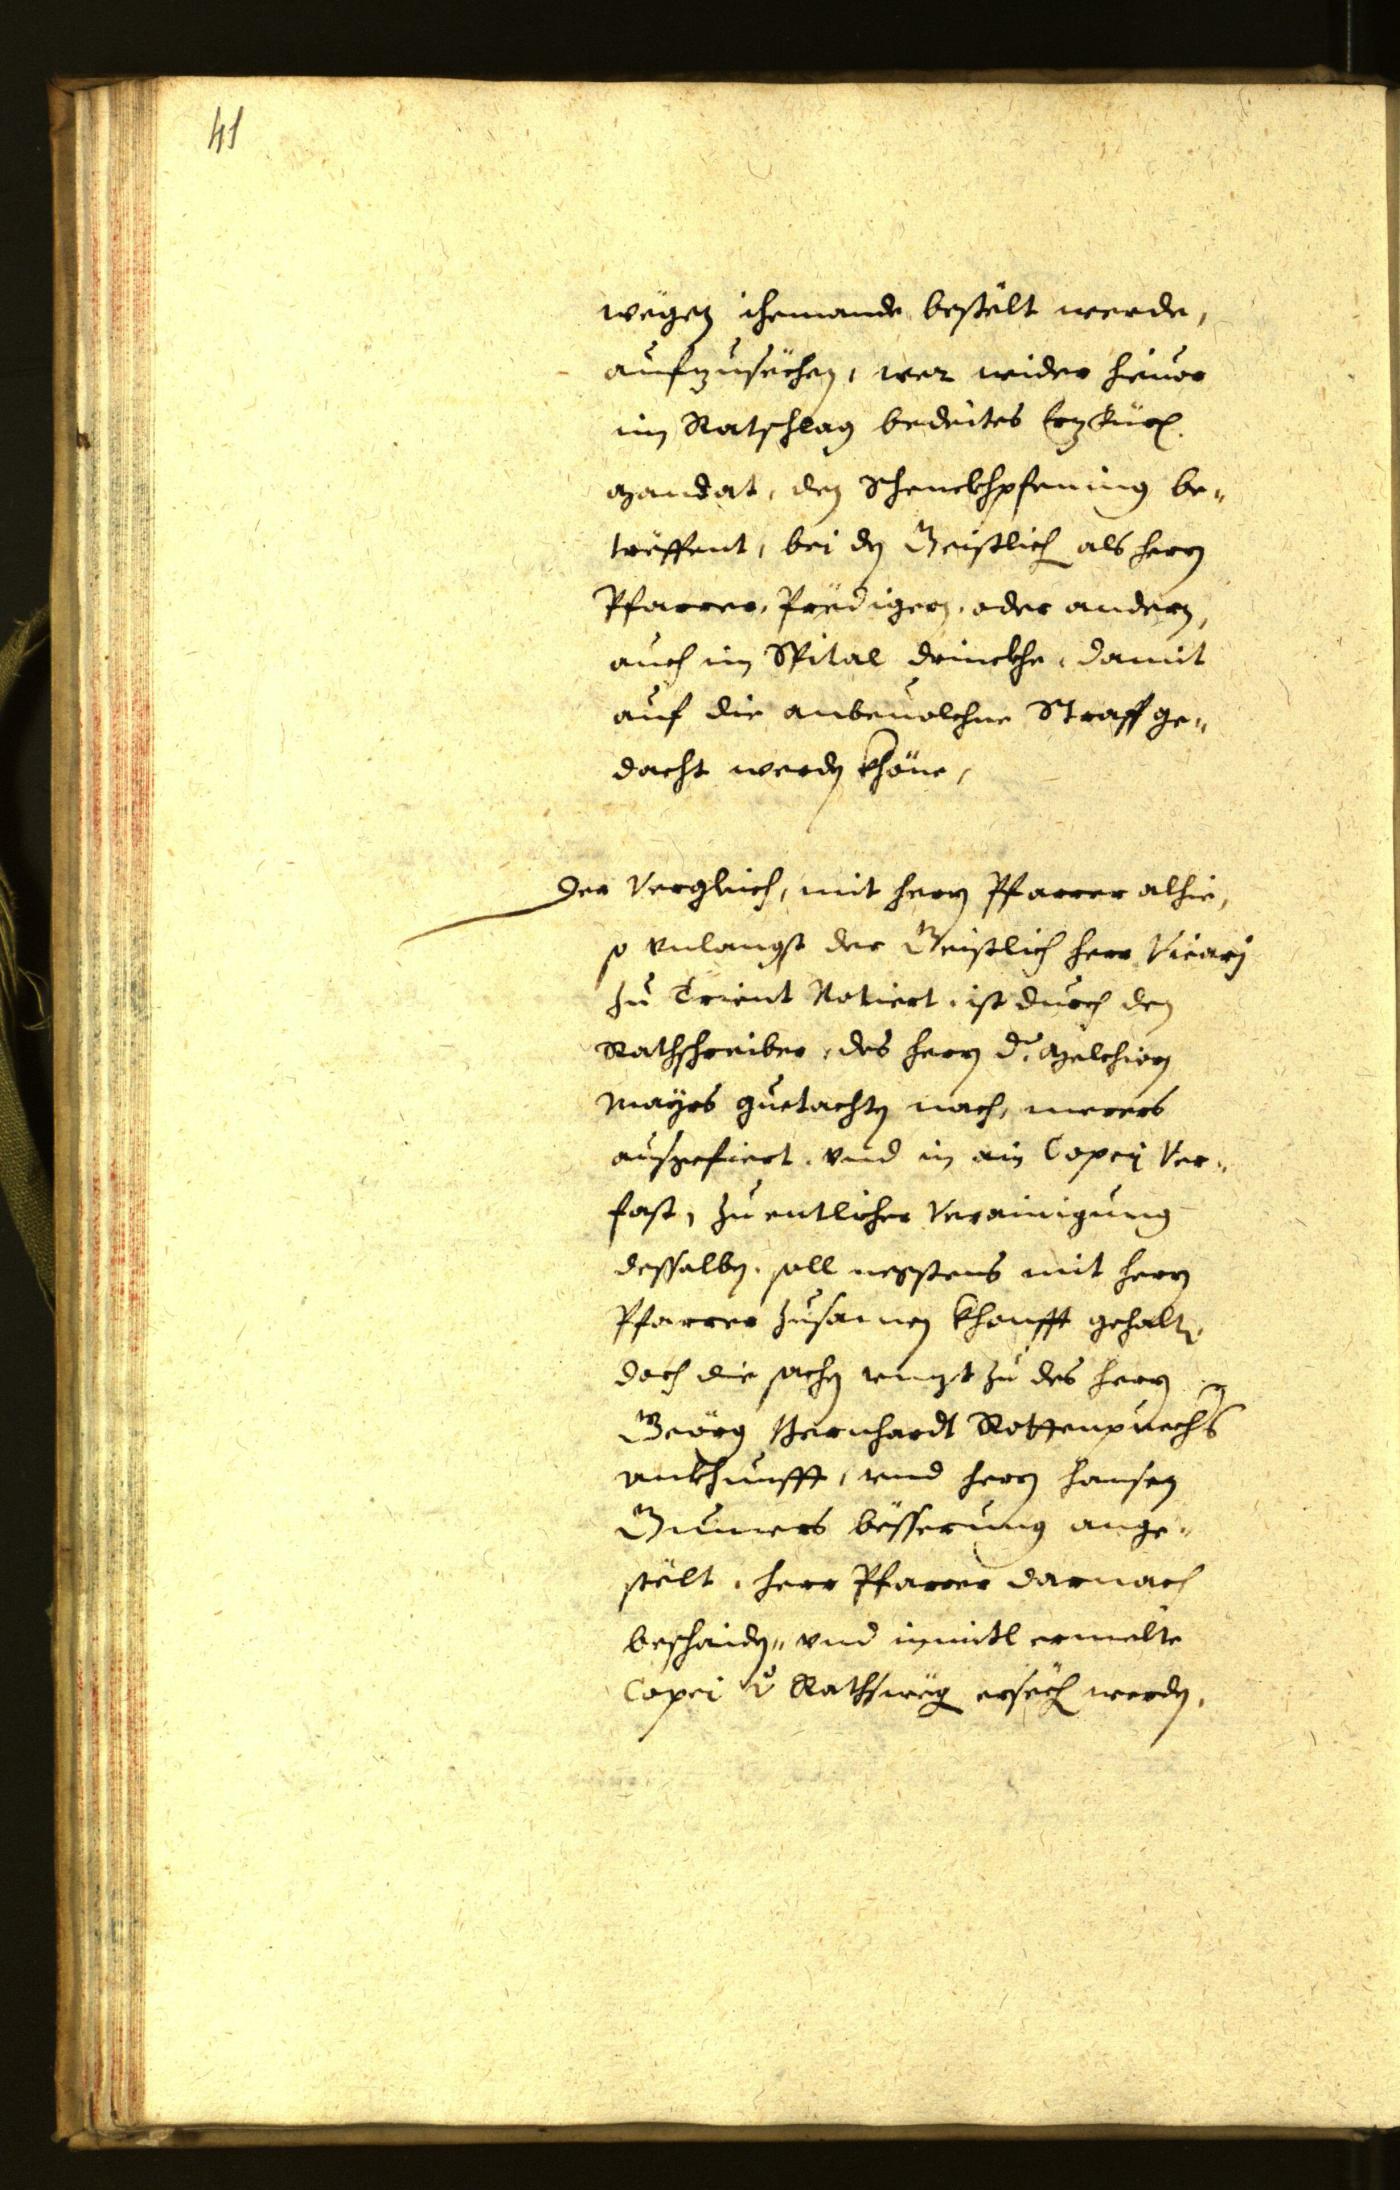 41
wegen ihemande bestelt werde,
aufzusechen, wer wider hieuor
im Ratschlag bedeites
Mandat, den Schenckhpfening be-
treffent, bei den Geistlich als herrn
Pfarrer, Predigern, oder andern,
auch im Spital drinckhe, damit
auf die anbeuolchne Straff ge-
dacht werden khöne,
Der Vergleich, mit herrn Pfarrer alhie,
so vnlangst der Geistlich herr Vicarj
zu Trient Notiert, ist durch den
Rathschreiber, des herrn D. Melchiorn
Mayrs guetachten nach, merers
ausgefiert, vnd in ain Copeij Ver-
fast, zu entlicher Verainigung
desselben, soll negstens mit herrn
Pfarrer Zusamen khonfft gehalten,
doch die sachen vnnzt zu des herrn
Geörg Bernhardt Rottenpuechs
ankhunfft, vnd herrn Hansen
Gumers bösserung ange-
stelt, herr Pfarrer darnach
beschaiden, vnd inmitl ermelte
Copei Rathsweg ersech werden,